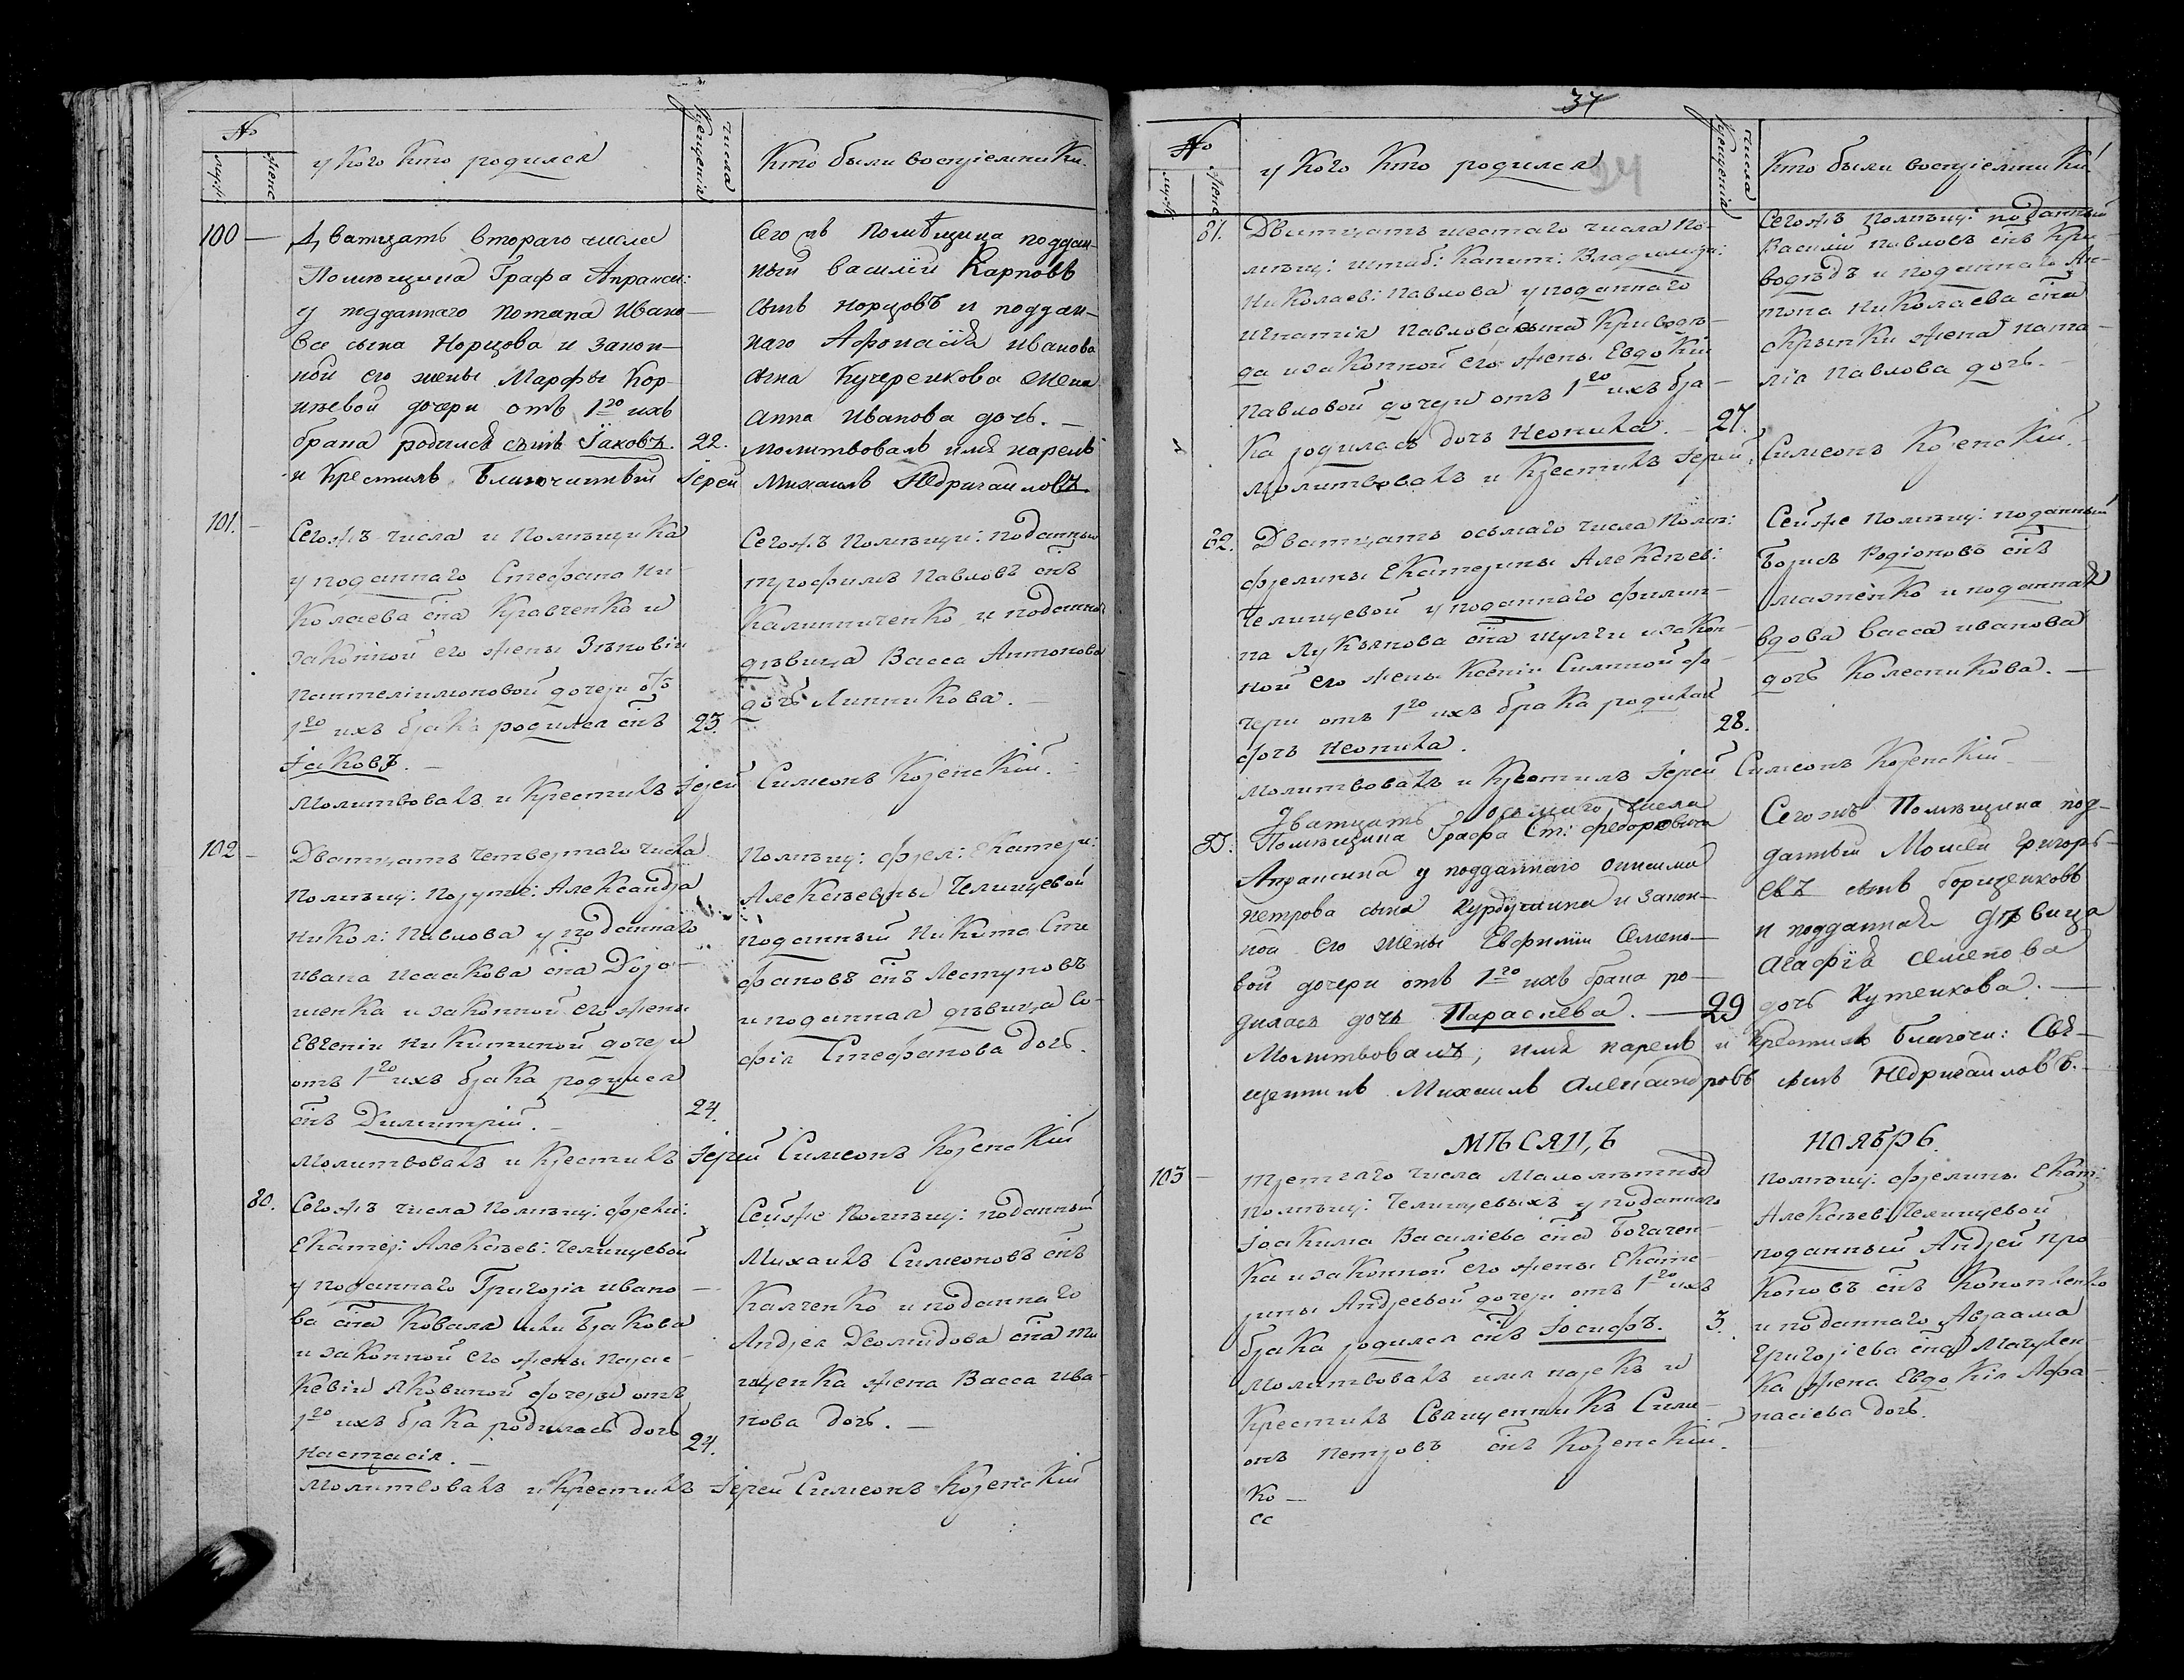 №
мужс
женс
у кого кто родился
числа
крещенія
Кто были воспріемники.
100 —
Дватцать втораго числа
Помѣщика Графа Апракси:
у подданнаго Потапа Ивано—
ва сына Норцова и закон—
ной его жены Марфы Кор—
нѣевой дочери отъ 1го ихъ
брака родился сынъ Іаковъ. 22.
и крестилъ Благочинный Іерей
Сего жъ Помѣщика поддан—
ный Василій Карповъ
сынъ Норцовъ и поддан—
наго Афонасія Иванова
сына Кучеренкова жена
Анна Иванова дочь. —
Молитвовалъ имя нарекъ
Михаилъ Недригаиловъ
101. —
Сегожъ числа и Помѣщика
у поданнаго Стефана Ни—
колаева сна Кравченка и
законной его жены Зѣновіи
Пантелимоновой дочери отъ
1го ихъ брака родился снъ 23.
Іаковъ. —
Молитвовалъ и крестилъ Іерей Симеонъ Коренскій. —
Сегожъ Помѣщи: поданный
Трофимъ Павловъ снъ
Калинниченко и поданна
дѣвица Васса Антонова
дочь Линникова. —
102 —
Дватцать четвертаго числа
Помѣщ: Поруче: Александра
Никол: Павлова у поданнаго
Ивана Исаакова сна Доро—
шенка и законной его жены
Евгеніи Никитиной дочери
отъ 1го ихъ брака родился
снъ Димитрій. — 24.
Молитвовалъ и крестилъ Іерей Симеонъ Коренскій
Помѣщ: Фрел: Екатери:
Алексѣевны Челищевой
поданный Никита Сте
фановъ снъ Лестуновъ
и поданная дѣвица Со—
фія Стефанова дочь.
80.
Сегожъ числа Помѣщ: Фрели:
Екатер: Алексѣев: Челищевой
у поданнаго Григорія Ивано—
ва сна Коваля или Бракова
и законной его жены Парас—
кевіи Яковиной дочери отъ
1го ихъ брака родилась дочь
Настасія. — 24.
Молитвовалъ и крестилъ Іерей Симеонъ Коренскій
Сейже Помѣщ: поданный
Михаилъ Симеоновъ снъ
Калченко и поданнаго
Андрея Деомидова сна Ти
щенка жена Васса Ива—
нова дочь. —
37
24
№
мужс
женс
у кого кто родился
числа
крещенія
Кто были воспріемники
81.
Дватцать шестаго числа По—
мѣщ: Штаб: Капит: Владимир:
Николаев: Павлова у поданнаго
Игнатія Павлова сына Криводѣ—
да и законной его жены Евдокіи
Павловой дочери отъ 1го ихъ бра—
ка родилась дочь Неонила. — 27.
Молитвовалъ и крестилъ Іерей Симеонъ Коренскій. —
Сегожъ Помѣщ: поданный
Василій Павловъ снъ Кри—
водѣдъ и поданнаго Ан—
тона Николаева сна
Скрынки жена Ната—
лія Павлова дочь.
82.
Дватцать осьмаго числа Помѣ:
Фрелины Екатерины Алексѣев:
Челищевой у поданнаго Филип—
па Лукьянова сна Шулги и закон—
ной его жены Ксеніи Симиной до—
чери отъ 1го ихъ брака родилась
дочь Неонила. 28.
Молитвовалъ и крестилъ Іерей Симеонъ Коренскій —
Сейже Помѣщ: поданный
Борисъ Родіоновъ снъ
Маженко и поданная
вдова Васса Иванова
дочь Колесникова. —
83.
Дватцать осьмаго числа
Помѣщика Графа Ст: Федоровича
Апраксина у подданнаго Онисима
Петрова сына Курдучина и закон—
ной его жены Евфиміи Семено—
вой дочери отъ 1го ихъ брака ро—
дилась дочь Параскева. — 29
Молитвовалъ, имя нарекъ и крестилъ благочи: Свя—
щенникъ Михаилъ Александровъ сынъ Недригаиловъ.
Сегожъ Помѣщика под—
данный Моисей Григорь—
евъ сынъ Борищенковъ
и подданная дѣвица
Агафія Семенова
дочь Кутенкова. —
МѢСЯЦЪ НОЯБРЬ
103 —
Третяго числа Малолѣтныхъ
Помѣщ: Челищевыхъ у поданнаго
Іоакима Василіева сна Богачен—
ка и законной его жены Екате—
рины Андреевой дочери отъ 1го ихъ
брака родился снъ Іосифъ. 3.
Молитвовалъ имя нарекъ и
крестилъ Священникъ Симе—
онъ Петровъ снъ Коренскій.
Помѣщ: Фрелины Екат:
Алексѣев: Челищевой
поданный Андрей Про
коповъ снъ Кононленко
и поданнаго Авраама
Григоріева сна Мачулен—
ка жена Евдокія Афа—
насіева дочь.
Ко —
сс